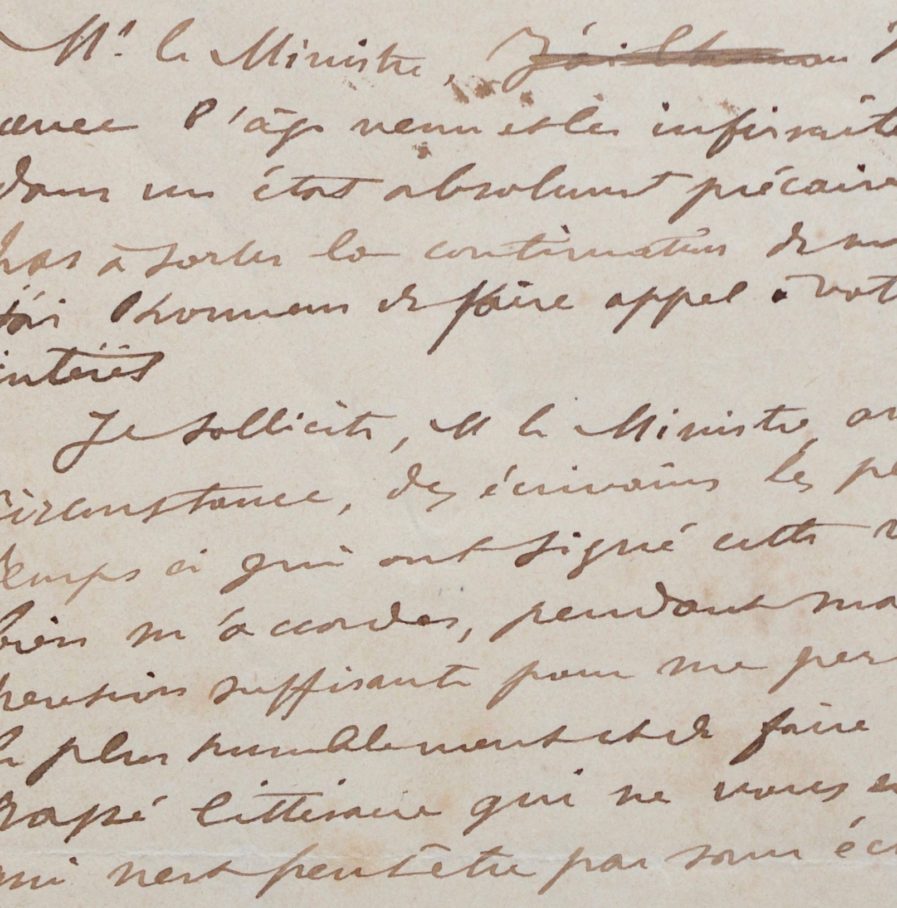 Mr. le Ministre,
avec l'âge venu et les infirmité
dans un état absolument précaire
pas à
j'ai l'honneur de faire appel à vot
intérêt
Je sollicite, M le Ministre, en
circonstance, des écrivains les pl
temps ci qui ont signé cette
bien m'accorder, pendant ma
pension suffisante pour me per
le plus humblement et de faire
passé littéraire qui ne vous es
qui n'est peut être pas sans éc